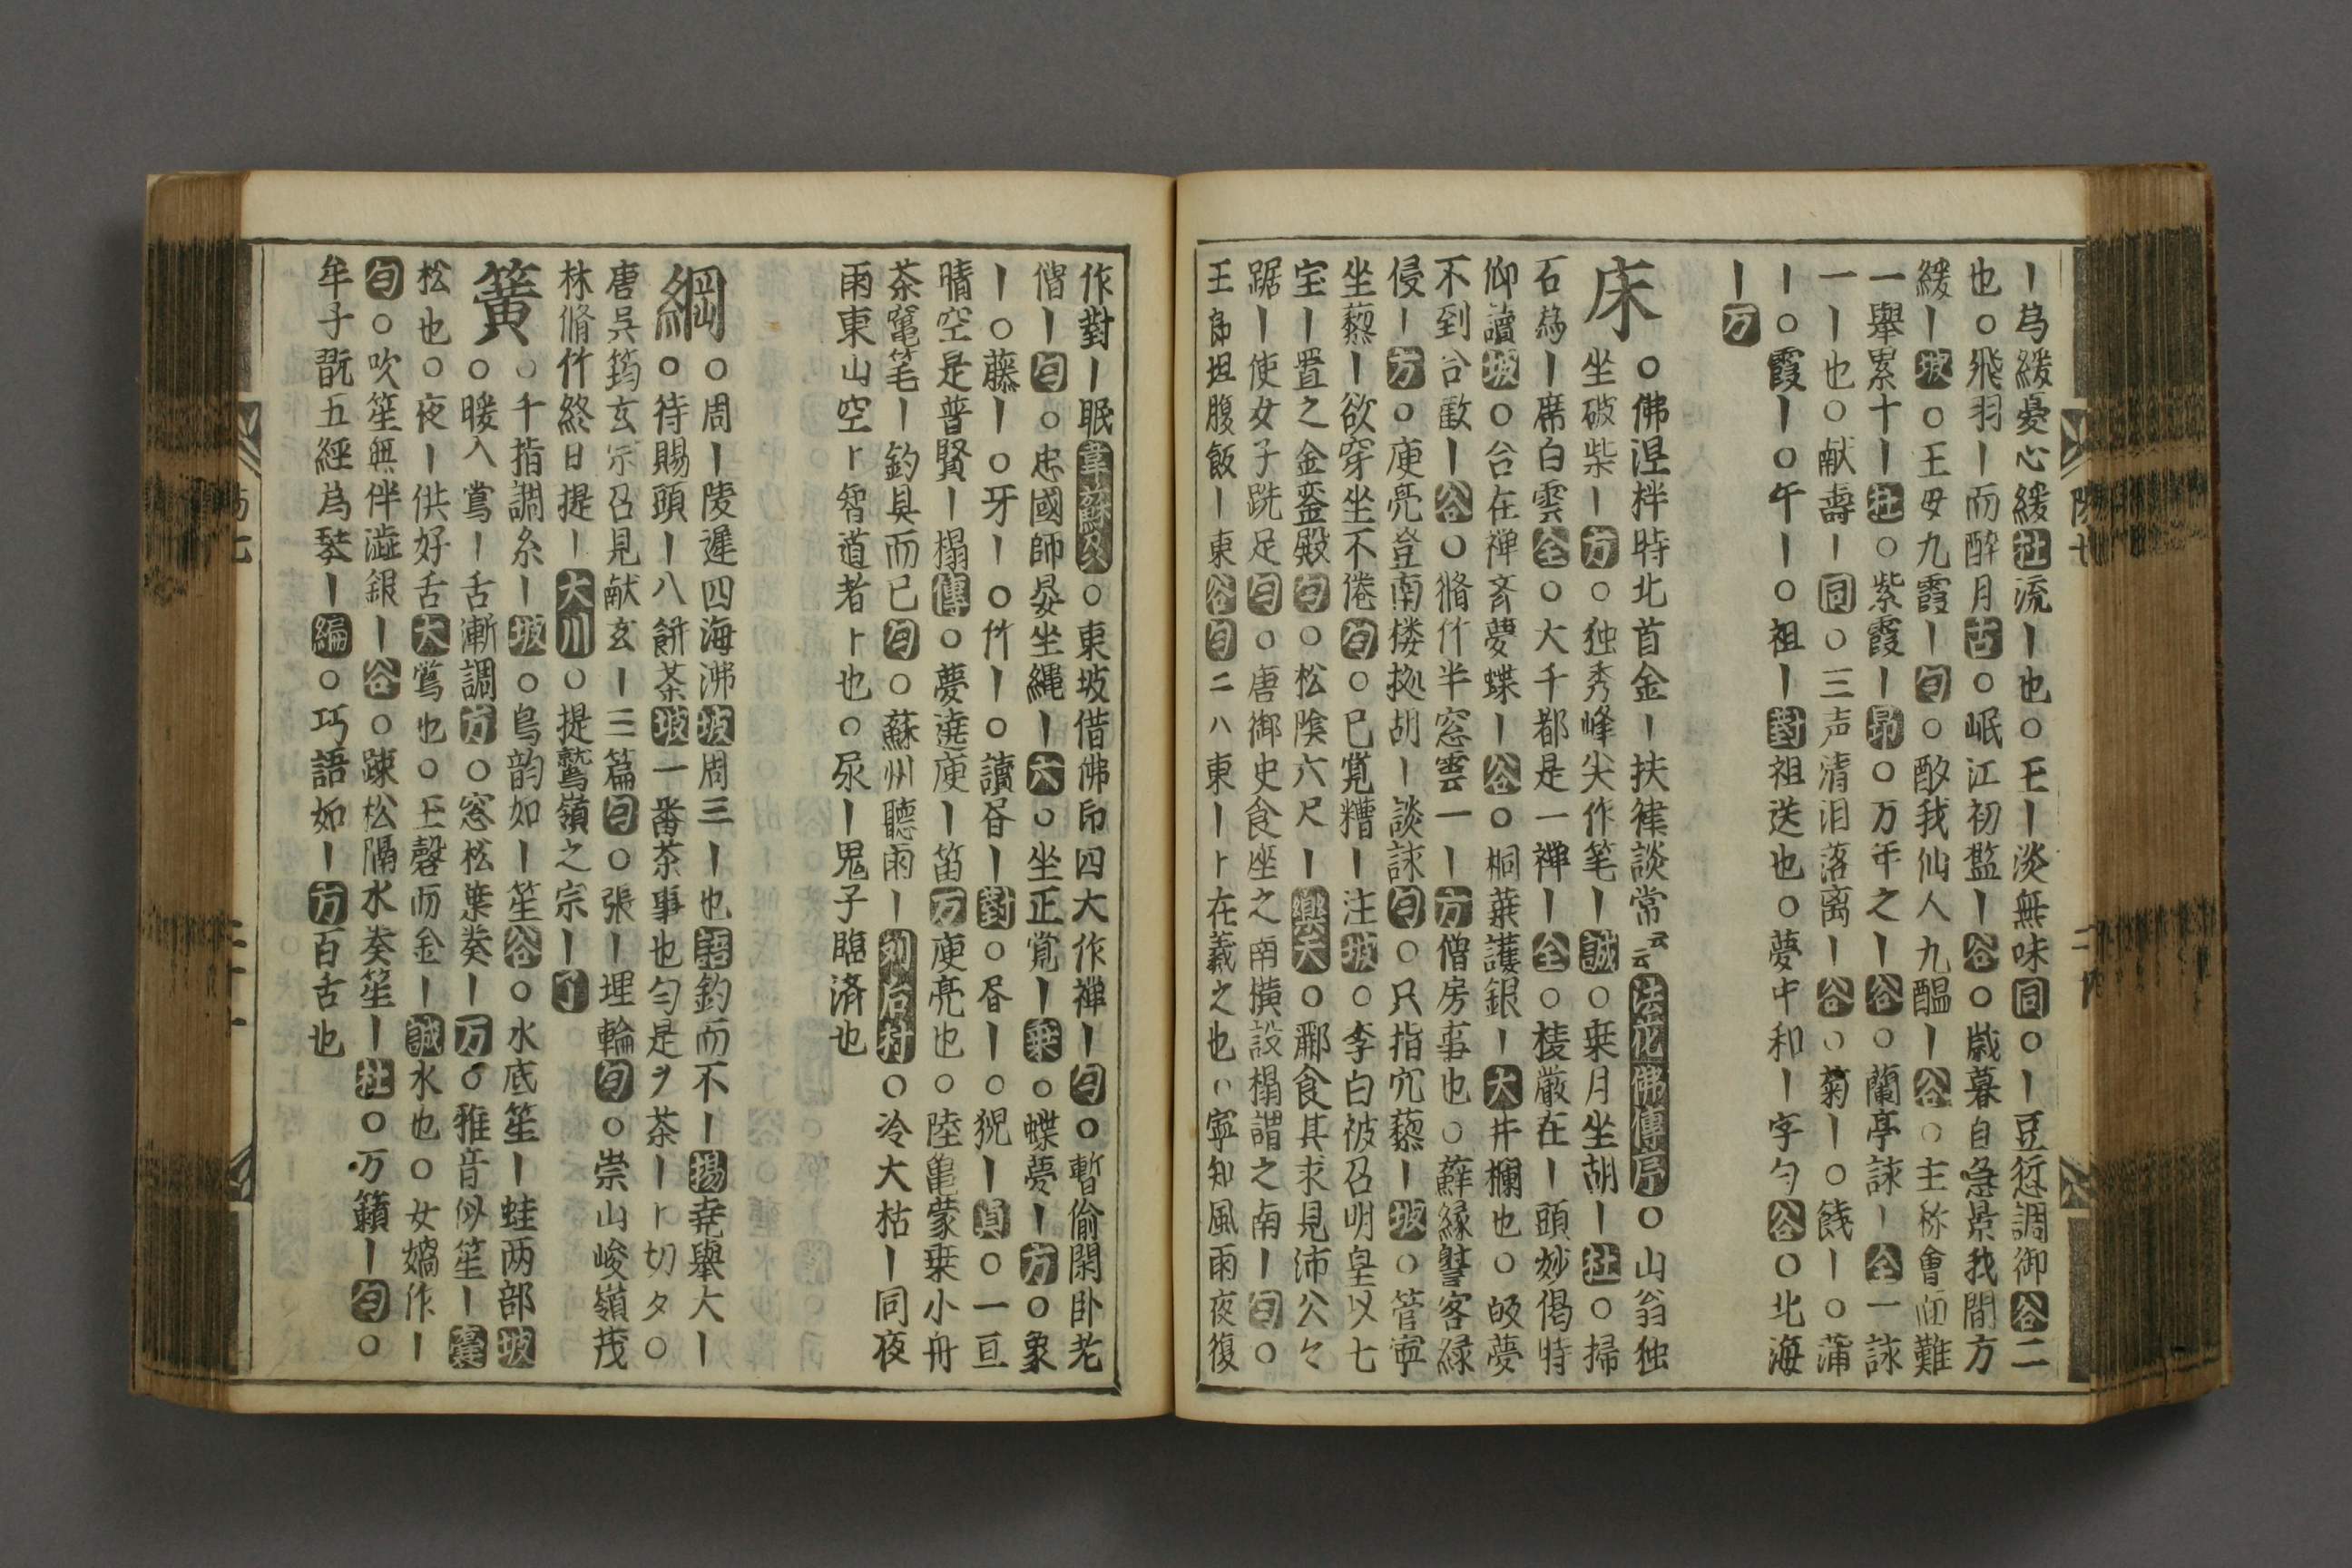 丨為緩憂心緩杜流丨也○王丨淡無味同○丨豆愆調御谷二
也○飛羽丨而醉月古○岷江初濫丨谷○歳暮自急景我間方
緩丨坡○王母九霞丨匀○酌我仙人九醞丨谷○主称會面難
一舉累十丨杜○紫霞丨昴○万年之丨谷○蘭亭詠丨全一詠
一丨也○献壽丨同○三声清泪落离丨谷○菊丨○餞丨○蒲
丨○霞丨○午丨○祖丨對祖送也○夢中和丨字匀谷○北海
丨万
床○佛涅柈時北首金丨扶律談常云云法化佛傳序○山翁独
坐破柴丨方○独秀峰尖作笔丨誠○乗月坐胡丨杜○掃
石為丨席白雲全○大千都是一禅丨全○棱厳在丨頭妙偈時
仰讀坡○台在禅斉夢蝶丨谷○桐葉護銀丨大井欄也○故夢
不到台敢丨谷○脩竹半窓雲一丨方僧房事也○蘚縁聱客緑
侵丨方○庾亮登南楼拠胡丨談詠匀○只指穴藜丨坡○管寧
坐藜丨欲穿坐不倦匀○已覚糟丨注坡○李白被召明皇以七
宝丨置之金銮殿匀○松陰六尺丨樂天○酈食其求見沛公々
踞丨使女子跣足匀○唐御史食座之南横設榻謂之南丨匀○
王郎坦腹飯丨東谷匀二八東丨卜在義之也○寧知風雨夜復
作對丨眠韋蘇久○東坡借佛印四大作禅丨匀○暫偷閑卧老
僧丨匀○忠國師晏坐縄丨六○坐正覚丨乗○蝶夢丨方○象
丨○藤丨○牙丨○竹丨○讀昼丨對○昼丨○猊丨真○一亘
晴空是普賢丨榻傳○夢遶庾丨笛万庾亮也○陸亀蒙乗小舟
茶竃笔丨釣具而已匀○蘇州聽雨丨刘后村○冷大枯丨同夜
雨東山空卜智道者卜也○尿丨鬼子臨済也
綱○周丨陵遲四海沸坡周三丨也語釣而不丨揚尭舉大丨
○待賜頭丨八餅茶坡一番茶事也匀是ヲ茶丨卜切タ○
唐呉筠玄宗召見献玄丨三篇匀○張丨埋輪匀○崇山峻嶺茂
林脩竹終日提丨大川○提鷲嶺之宗丨了
簧○千指調糸丨坡○鳥韵如丨笙谷○水底笙丨蛙两部坡
○暖入鴬丨舌漸調方○窓松葉奏丨万○雅音似笙丨嚢
松也○夜丨供好舌大鴬也○玉磬而金丨誠水也○女媧作丨
匀○吹笙無伴澁銀丨谷○踈松隔水奏笙丨杜○万籟丨匀○
牟子翫五經為琴丨編○巧語如丨万百舌也